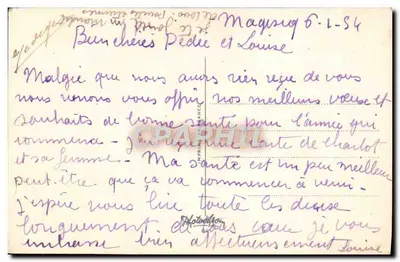 6-1-54
Bien chères Dédée et Louise
Malgré que nous avons rien reçu de vous
nous venons vous offrir nos meilleurs vœux et
souhaits de bonne santé pour l'année qui
commence - J'ai reçu une carte de charlot
et sa femme - Ma santé est un peu meilleur
peut-être que ça va commencer à venir -
J'espère vous lire toute les deux
longuement je vous
embrasse bien affectueusement Louise